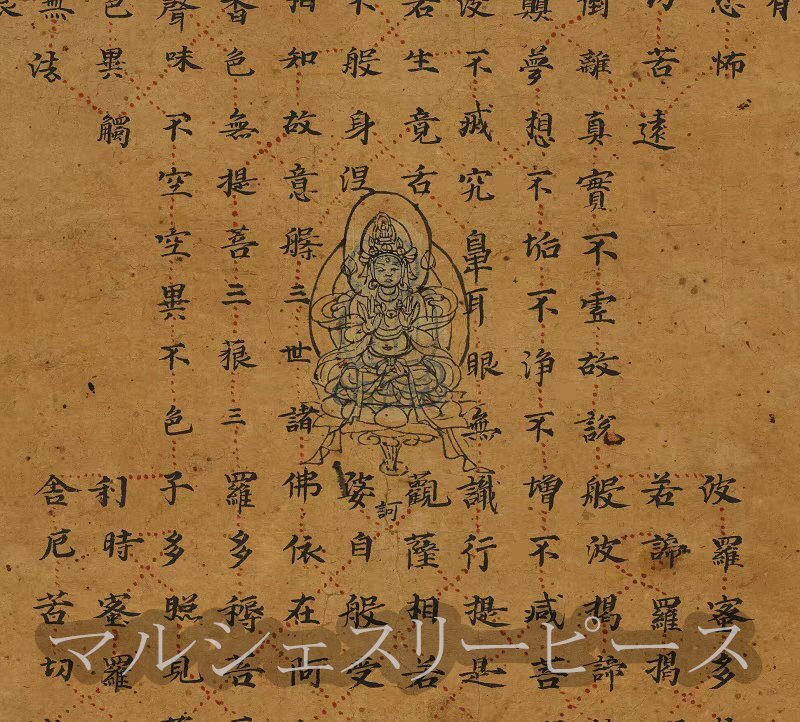 怖
波羅蜜多
苦遠
若諦羅揭
倒離真實不虛故說般波揭諦
顛夢想不垢不淨不增不減菩
不滅究鼻耳眼無識行提是
若生竟舌
觀薩相若
不般身涅
婆自般受
訶
相知故意
三世諸佛依在
香色無提菩三藐三羅多
聲味不空空異不色子多照見
色異觸
利時蜜羅
無法
舍厄苦切
マルシェスリーピース